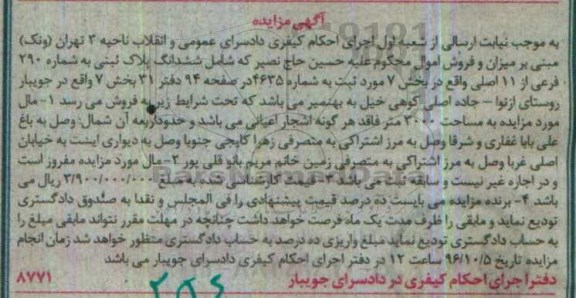 آگهی مزایده
به موجب نیابت ارسالی از شعبه اول اجرای احکام کیفری دادسرای عمومی و انقلاب ناحیه ۳ تهران (ونک)
مبنی بر میزان و فروش اموال محکوم علیه حسین حاج نصیر که شامل ششدانگ پلاک ثبتی به شماره ۲۹۰
فرعی از ۱۱ اصلی واقع در بخش ۷ مورد ثبت به شماره ۴۶۳۵ در صفحه ۹۴ دفتر ۳۱ بخش ۷ واقع در جویبار
روستای ازنوا - جاده اصلی کوهی خیل به بهنمیر می باشد که تحت شرایط زیر به فروش می رسد ۱- مال
مورد مزایده به مساحت ۳۰۰۰ متر فاقد هر گونه اشجار اعیانی می باشد و حدود اربعه آن شمالا وصل به باغ
علی بابا غفاری و شرقا وصل به مرز اشتراکی به متصرفی زهرا کابجی جنوبا وصل به دیواری ایست به خیابان
اصلی غربا وصل به مرز اشتراکی به متصرفی زمین خانم مریم بانو قلی پور ۲- مال مورد مزایده مفروز است
و در اجاره غیر نیست و سابقه ثبت می باشد ۳- قیمت کارشناسی شده به مبلغ ۳/۹۰۰/۰۰۰/۰۰۰ ریال می
باشد ۴- برنده مزایده می بایست ده درصد قیمت پیشنهادی را فی المجلس و نقدا به صندوق دادگستری
تودیع نماید و مابقی را ظرف مدت یک ماه فرصت خواهد داشت چنانچه در مهلت مقرر نتواند مابقی مبلغ را
به حساب دادگستری تودیع نماید مبلغ واریزی ده درصد به حساب دادگستری منظور خواهد شد زمان انجام
مزایده تاریخ ۹۶/۱۰/۵ ساعت ۱۲ در دفتر اجرای احکام کیفری دادسرای جویبار می باشد
دفتر اجرای احکام کیفری در دادسرای جویبار ۸۷۷۱